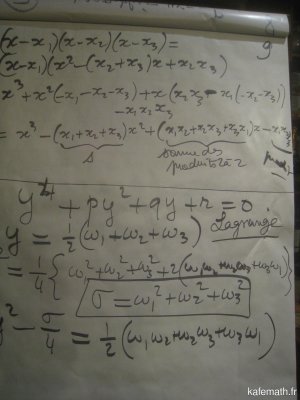 (x-x₁)(x-x₂)(x-x₃)=
(x-x₁)(x²-(x₂+x₃)x+x₂x₃)
x³+x²(-x₁-x₂-x₃)+x(x₂x₃-x₁(-x₂-x₃))
-x₁x₂x₃
= x³-(x₁+x₂+x₃)x²+(x₁x₂+x₂x₃+x₃x₁)x-x₁x₂x₃
s somme des
produits 2 à 2
y⁴+py²+qy+r=0
Lagrange
y = ½(ω₁+ω₂+ω₃)
= ¼{ω₁²+ω₂²+ω₃²+2(ω₁ω₂+ω₂ω₃+ω₃ω₁)
σ=ω₁²+ω₂²+ω₃²
y²-σ/4 = ½(ω₁ω₂+ω₂ω₃+ω₃ω₁)
kafemath.fr